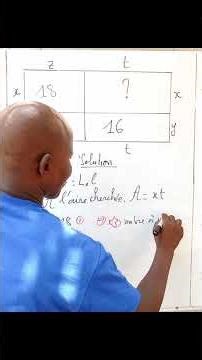 z t
x 18 ? x
16 y
t
Solution
= L.l
l'aire cherchée. A = xt
18 ① ⇒